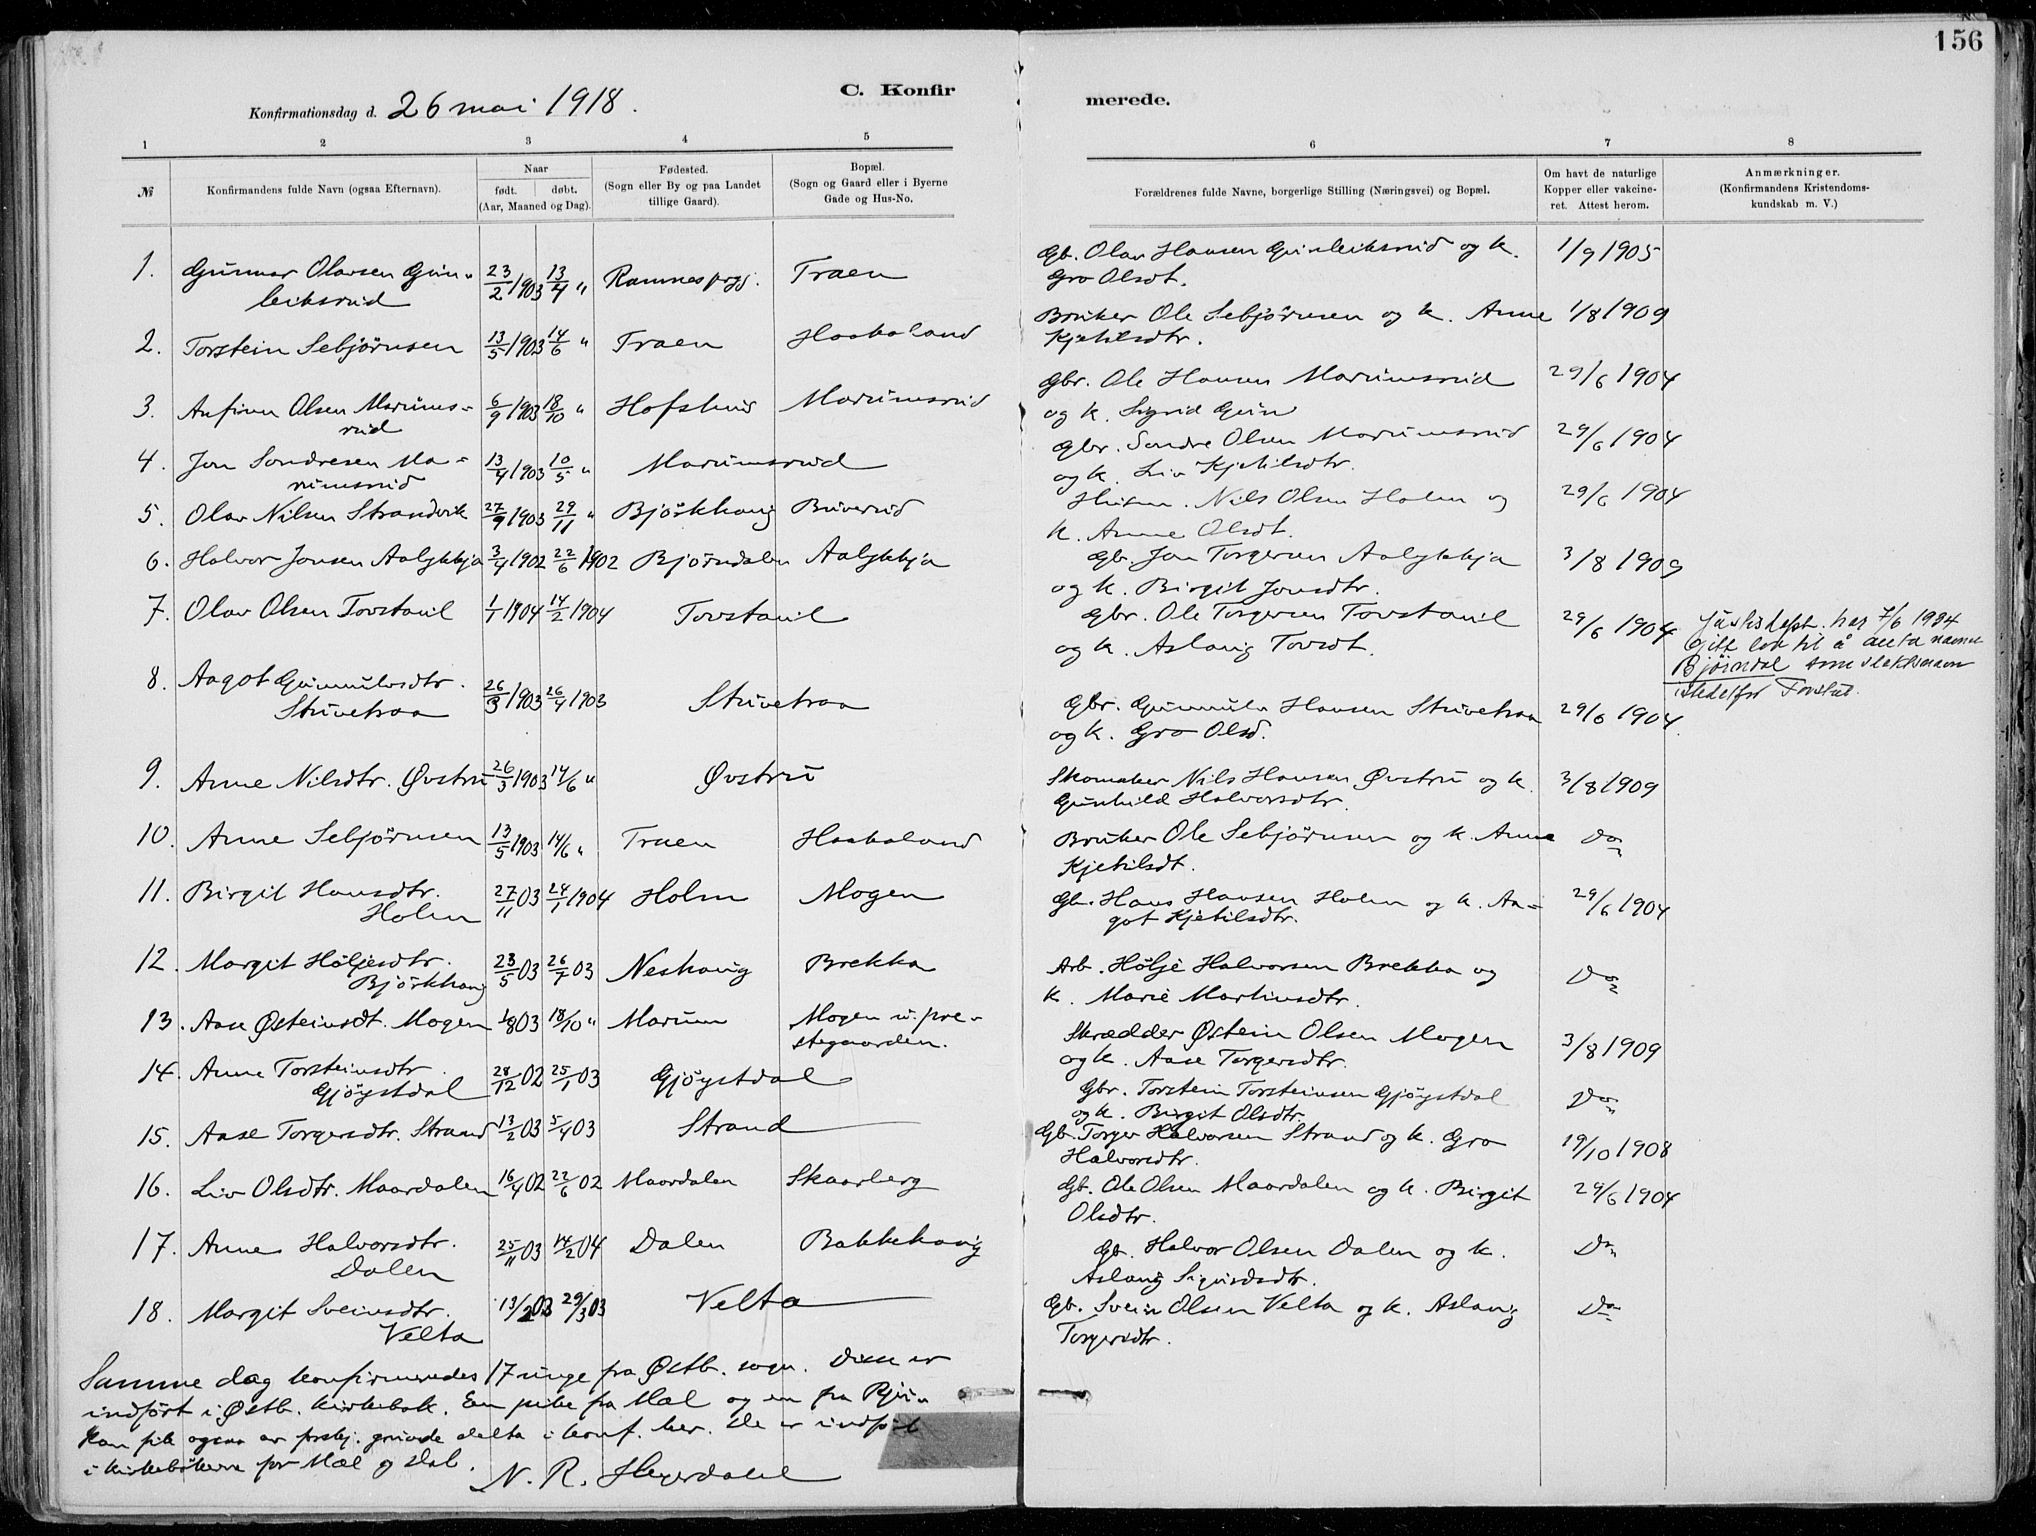 156
C. Konfir
merede.
Konfirmationsdag d. 26 mai 1918.
1 2 3 4 5 6 7 8
№
Konfirmandens fulde Navn (ogsaa Efternavn).
Naar
født. døbt.
(Aar, Maaned og Dag).
Fødested.
(Sogn eller By og paa Landet
tillige Gaard).
Bopæl.
(Sogn og Gaard eller i Byerne
Gade og Hus-No.
Forældrenes fulde Navne, borgerlige Stilling (Næringsvei) og Bopæl.
Om havt de naturlige
Kopper eller vakcine-
ret. Attest herom.
Anmærkninger.
(Konfirmandens Kristendoms-
kundskab m. V.)
1. Gunnar Olavsen Gun- 23/2 1903 13/4 " Ramnes prgj. Traen Gb. Olav Hansen Gunleiksrud og k. 1/9 1905
leiksrud Gro Olsdt.
2. Torstein Sebjørnsen 13/5 1903 14/6 " Traen Haakaland Bruker Ole Sebjørnsen og k. Anne 1/8 1909
Kjetilsdtr.
3. Anfinn Olsen Marums- 6/9 1903 18/10 " Marumsrud Gbr. Ole Hansen Marumsrud 29/6 1904
rud og k. Sigrid
4. Jon Sondresen Ma- 13/4 1903 10/5 " Marumsrud Gbr. Sondre Olsen Marumsrud 29/6 1904
rumsrud og k. Liv Kjetilsdtr.
5. Olav Nilsen Strandvik 27/9 1903 29/11 " Bjørkhaug Buverud Nils Olsen Holm og 29/6 1904
k. Anne Olsdt.
6. Halvor Jonsen Aalykkja 3/4 1902 22/6 1902 Bjørndalen Aalykkja Gb. Jon Torgersen Aalykkja 3/8 1909
og k. Birgit Jonsdtr.
7. Olav Olsen Tovstaul 1/1 1904 14/2 1904 Tovstaul Gbr. Ole Torgersen Tovstaul 29/6 1904
og k. Aslaug Tovsdt.
Justisdept. har 7/6 1934
gitt lov til å anta navnet
Bjørndal som slektsnavn
istedefor Tovstul.
8. Aagot Gunnulvsdtr. 26/3 1903 26/4 1903 Stuvetraa Gbr. Gunnulv Hansen Stuvetraa 29/6 1904
Stuvetraa og k. Gro Olsd.
9. Anne Nilsdtr. Øvstru 26/3 1903 14/6 " Øvstru Skomaker Nils Hansen Øvstru og k. 3/8 1909
Gunhild Halvorsdtr.
10. Anne Sebjørnsen 13/5 1903 14/6 " Traen Haakaland Bruker Ole Sebjørnsen og k. Anne Do
Kjetilsdt.
11. Birgit Hansdtr. 27/11 03 24/1 1904 Holm Mogen Gb. Hans Hansen Holm og k. Aa- 29/6 1904
Holm got Kjetilsdtr.
12. Margit Høljesdtr. 23/5 03 26/7 03 Neshaug Brekka Arb. Hølje Halvorsen Brekka og Do
Bjørkhaug k. Marie Martinsdtr.
13. Aase Østeinsdt. Mogen 1/8 03 18/10 " Marum Mogen u. pre- Skrædder Østein Olsen Mogen 3/8 1909
stegaarden. og k. Aase Torgersdtr.
14. Anne Torsteinsdtr. 28/12 02 25/1 03 Gjøystdal Gbr. Torstein Torsteinsen Gjøystdal Do
Gjøystdal og k. Birgit Olsdtr.
15. Aase Torgersdtr. Strand 13/2 03 5/4 03 Strand Gb. Torger Halvorsen Strand og k. Gro 19/10 1908
Halvorsdtr.
16. Liv Olsdtr. Maardalen 16/4 02 22/6 02 Maardalen Skaarberg Gb. Ole Olsen Maardalen og k. Birgit 29/6 1904
Olsdtr.
17. Anne Halvorsdtr. 25/11 03 14/2 04 Dalen Bakkehaug Gb. Halvor Olsen Dalen og k. Do
Dalen Aslaug Sigurdsdtr.
18. Margit Sveinsdtr. 13/2 03 29/3 03 Velta Gb. Svein Olsen Velta og k. Aslaug Do
Velta Torgersdtr.
Samme dag konfirmeredes 17 unge fra Østb. sogn. Disse er
indført i Østb. kirkebok. En pike fra Mæl og en fra Rju-
kan fik ogsaa av forskj. grunde delta i konf. her. De er indført
i kirkebøkerne for Mæl og Dal.
N. R. Heyerdahl